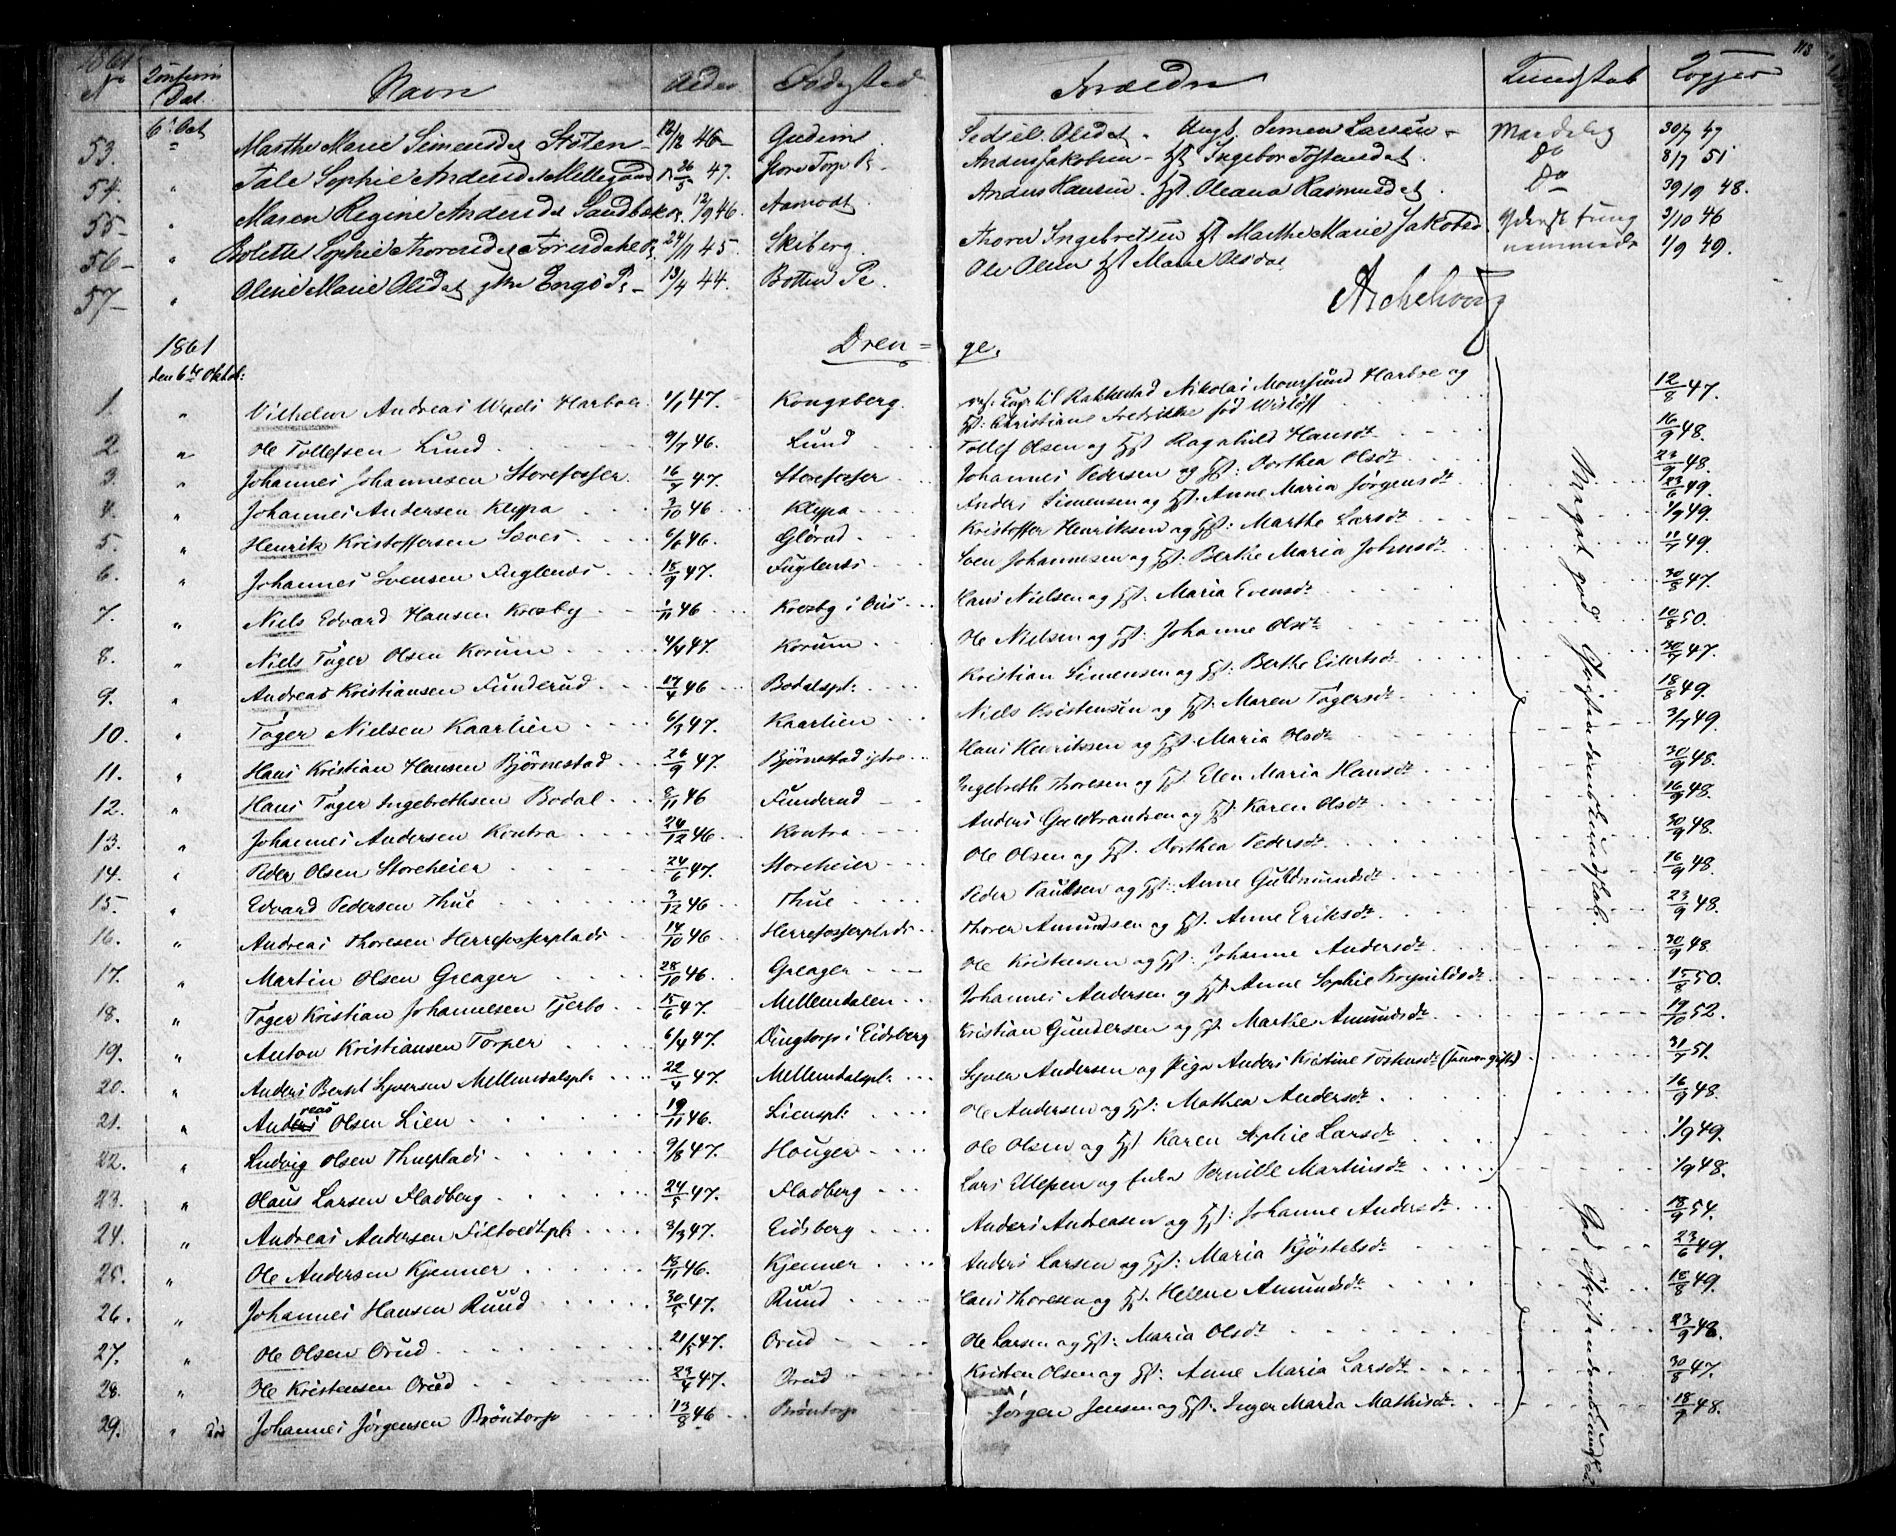 1861
113
No Confirm. Dat. Navn Alder Fødested Forældre Kundskab Copper
53. 6' Oct Marthe Marie Simensdt Støten 46 Gudim Sedsel Olsdat Ungk. Simen Larsen Maadelig 30/7 47
54. " Tale Sophie Andersdt Mellegaard 26/5 47. Store Torp Anders Jakobsen Ingebor Tostensdat Do 8/7 51
55 " Maren Regine Andersdt Sandbæk 12/9 46. Aamodt Anders Hansen Oleana Rasmusdat Do 48.
56 " Bolette Sophie Thoresdt 24/11 45 Skiberg Thorer Ingebretsen Marthe Marie Jakobsd. yderst tung 3/10 46
57 " Oline Marie Olsdat Engø 13/4 44. Botten Ole Olsen Marie Olsdat nemmede 1/9 49.
1861
den 6te Oktob: Dren= ge.
1. " Vilhelm Andreas Harboe 1/1 47. Kongsberg Rakkestad Nikolai Harboe og 12/8 47.
Christiane Fredrikke fød Wisløff
2 " Ole Tollefsen Lund 9/7 46. Lund Tollef Olsen og Ragnhild Hansdt 16/9 48.
3. " Johannes Johannesen Storefosser 16/7 47. Storefosser Johannes Pedersen og Dorthea Olsdt 23/9 48.
4. " Johannes Andersen Kleppa 3/10 46 Kleppa Anders Simensen og Anne Maria Jørgensdt 23/6 49.
5. " Henrik Kristoffersen 6/6 46. Glørud Kristoffer Henriksen og Marthe Larsdt 1/9 49.
6. " Johannes Svensen Fuglenes 15/9 47. Fuglenes Sven Johannesen og Berthe Maria Johnsdt 11/7 49.
7. " Niels Edvard Hansen Krosby 1/11 46 Krosby i Øiis Hans Nielsen og Maria Evensdt 30/8 47.
8. " Niels Tøger Olsen Korum 4/4 47. Korum Ole Nielsen og Johanne Olsdt 10/8 50.
9. " Andreas Kristiansen Funderud 17/4 46 Bodalspl. Kristian Simensen og Berthe Eilertsdt 47.
10. " Tøger Nielsen Kaarlien 6/3 47. Kaarlien Niels Kristensen og Maren Tøgersdt 18/8 49.
11. " Hans Kristian Hansen Bjørnestad 26/9 47. Bjørnestad Hans Henriksen og Maria Olsdt 3/7 49.
12. " Hans Tøger Ingebrethsen Bodal 8/11 46 Funderud Ingebreth Thoresen og Elen Maria Hansdt 30/9 48.
13. " Johannes Andersen Kontra 24/12 46. Kontra Anders Guldbrantsen og Karen Olsdt 16/9 48.
14. " Peder Olsen Storeheier 24/6 47. Storeheier Ole Olsen og Dorthea Pedersdt 30/9 48.
15. " Edvard Pedersen Thue 3/12 46 Thue Peder Paulsen og Anne Guldmundsdt 16/9 48.
16. " Andreas Thoresen Herrefosserplads 14/10 46 Herrefosserplads Thorer Amundsen og Anne Eriksdt 23/9 48.
17. " Martin Olsen Greager 28/10 46. Greager Ole Kristensen og Johanne Andersdt 30/9 48.
18. " Tøger Kristian Johannesen Tjerbo 15/6 47. Mellemdalen Johannes Andersen og Anne Sophie 15/8 50.
19. " Anton Kristiansen Torper 6/4 47. Dingtorp i Eidsberg Kristian Gundersen og Marthe Amundsdt 19/10 52.
20. " Anders Bernt Syversen Mellemdalspl. 22/4 47. Mellemdalspl. Syver Andersen og Pige Anders Kristine Tostensdt 31/7 51.
21. " Andreas Olsen Lien 19/11 46. Lienspl. Ole Andersen og Mathea Andersdt 16/9 48.
22. " Ludvig Olsen Thueplads 9/8 47. Houger Ole Olsen og Karen Sophie Larsdt 1/9 49.
23. " Olaus Larsen Fladberg 24/5 47. Fladberg Lars Ellefsen og Enke Pernille Martinsdt 1/9 48.
24. " Andreas Andersen 8/3 47. Eidsberg Anders Andreasen og Johanne Andersdt 18/9 54.
25. " Ole Andersen Kjenner 13/11 46. Kjenner Anders Larsen og Maria Kjøstelsdt 23/6 49.
26. " Johannes Hansen Ruud 30/5 47. Ruud Hans Thoresen og Helene Amundsdt 18/8 49.
27. " Ole Olsen Orud 21/5 47. Orud Ole Larsen og Maria Olsdt 23/9 48.
28. " Ole Kristensen Orud 23/4 47. Orud Kristen Olsen og Anne Maria Larsdt 30/8 47.
29. " Død Johannes Jørgensen Brøntorp 13/8 46 Brøntorp Jørgen Jensen og Inger Maria Mathisdt 18/9 48.
Meget god Christendomskundskab.
God Christendomskundskab